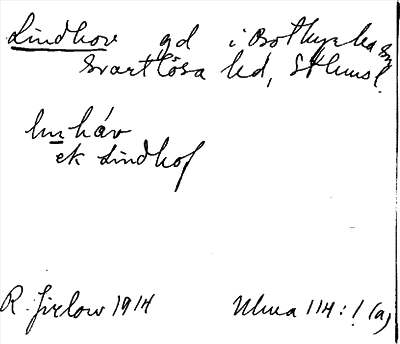 Lindhov gd i Botkyrka sn
Svartlösa hd, Sthmsl.
lınháv
ek Lindhof
R. Jirlow 1914 Ulma 114:1 (a)